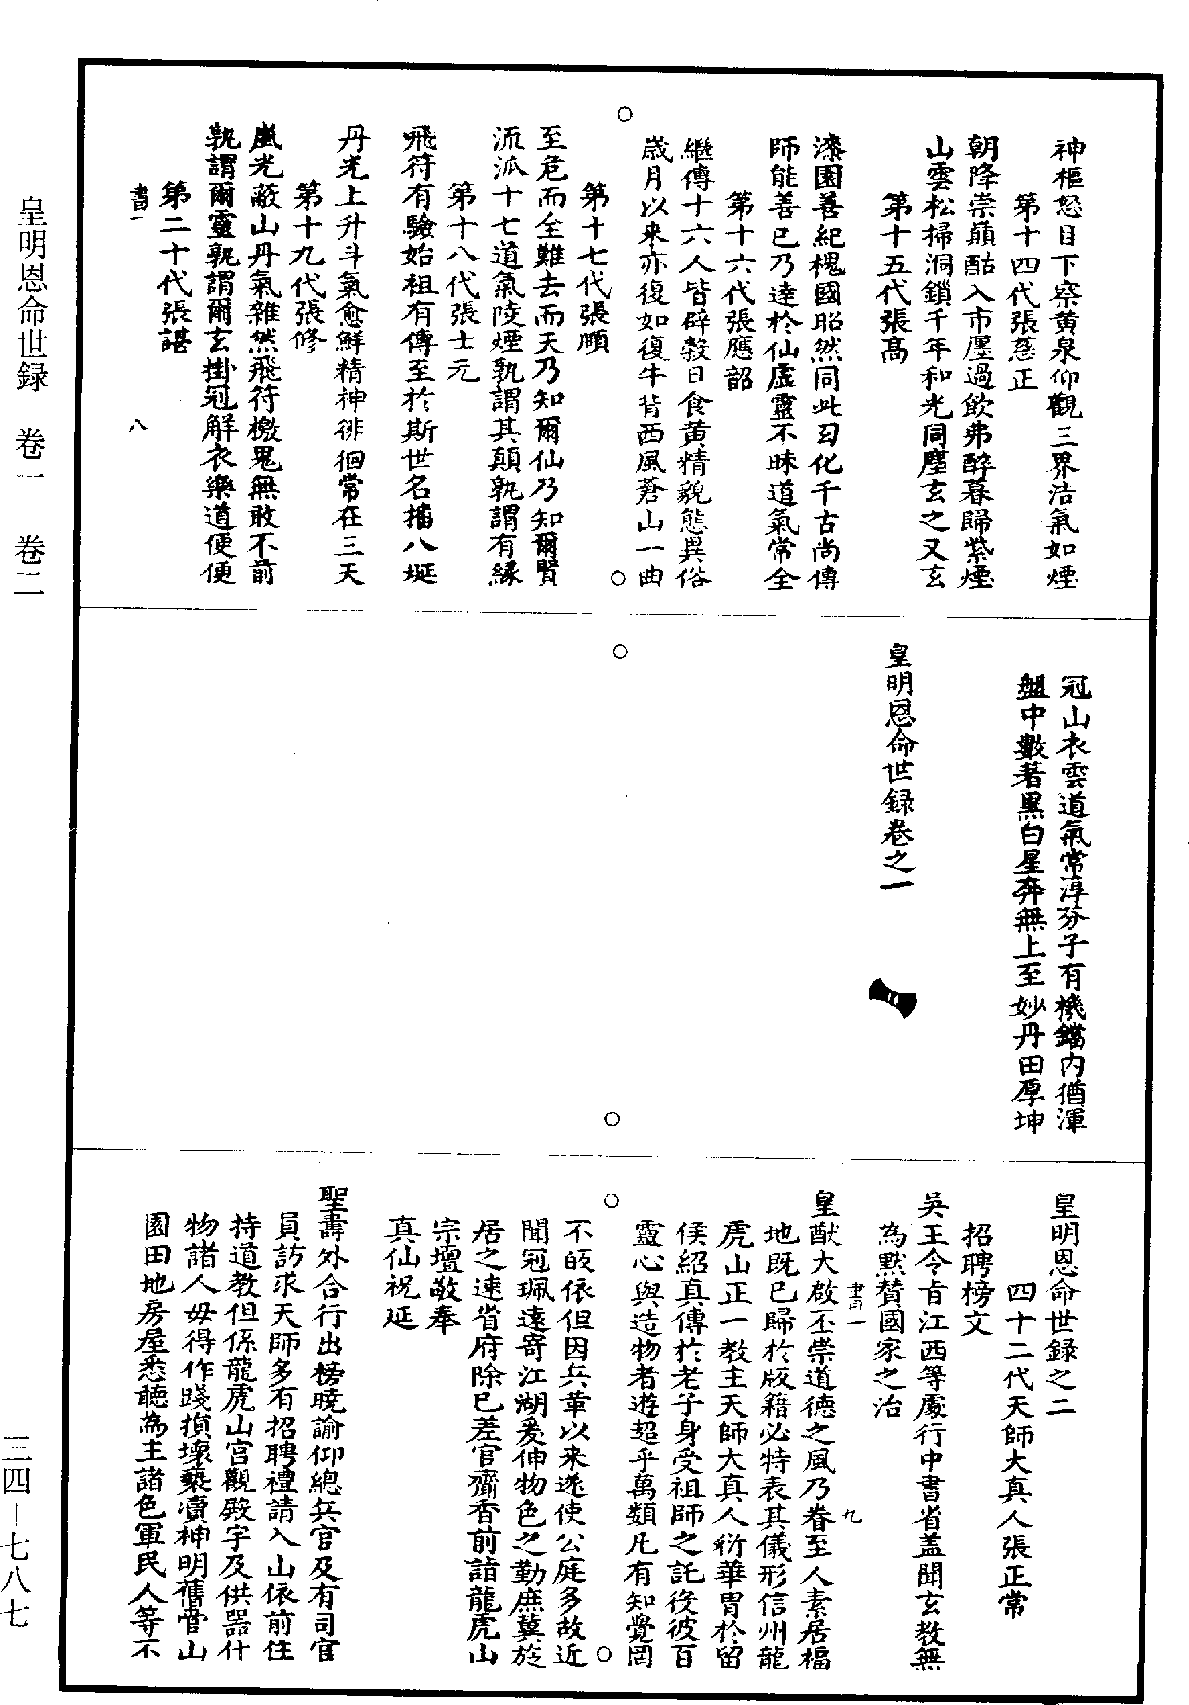 神樞怒目下察黃泉仰觀三界浩氣如煙
第十四代張慈正
朝降崇巔酤入市廛過飲弗醉暮歸紫煙
山雲松掃洞鎖千年和光同塵玄之又玄
第十五代張高
漆園善紀槐國昭然同此曰化千古尚傳
師能善已乃達於仙虛靈不昧道氣常全
第十六代張應韶
繼傳十六人皆辟穀日食黃精貌態異俗
歲月以來亦復如復牛背西風蒼山一曲
第十七代張順
至危而全難去而天乃知爾仙乃知爾賢
流派十七道氣陵煙孰謂其顛孰謂有緣
第十八代張士元
飛符有驗始祖有傳至於斯世名播八埏
丹光上升斗氣愈鮮精神徘徊常在三天
第十九代張修
嵐光蔽山丹氣雜然飛符檄鬼無敢不前
孰謂爾靈孰謂爾玄掛冠解衣樂道便便
第二十代張諶
書一
八
冠山衣雲道氣常淳芬子有機鐺內猶渾
盤中數著黑白星奔無上至妙丹田厚坤
皇明恩命世録卷之一
皇明恩命世録之二
四十二代天師大真人張正常
招聘榜文
吳王令旨江西等處行中書省蓋聞玄教無
為默贊國家之治
書一
九
皇猷大啟丕崇道德之風乃眷至人素居福
地既已歸於版籍必特表其儀形信州龍
虎山正一教主天師大真人衍華胄於留
侯紹真傳於老子身受祖師之託後彼百
靈心與造物者遊超乎萬類凡有知覺罔
不皈依但因兵革以來遂使公庭多故近
聞冠珮遠寄江湖爰伸物色之勤庶冀旋
居之速省府除已差官齎香前詣龍虎山
宗壇敬奉
真仙祝延
聖壽外合行出榜曉諭仰總兵官及有司官
員訪求天師多有招聘禮請入山依前住
持道教但係龍虎山宮觀殿宇及供器什
物諸人毋得作踐損壞褻瀆神明舊管山
園田地房屋悉聽為主諸色軍民人等不
皇明恩命世録 卷一 卷二
三四—七八七